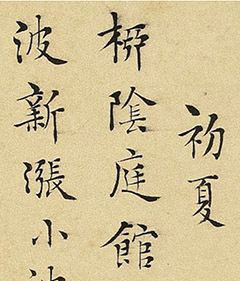 初夏
桺陰庭館
波新漲小池